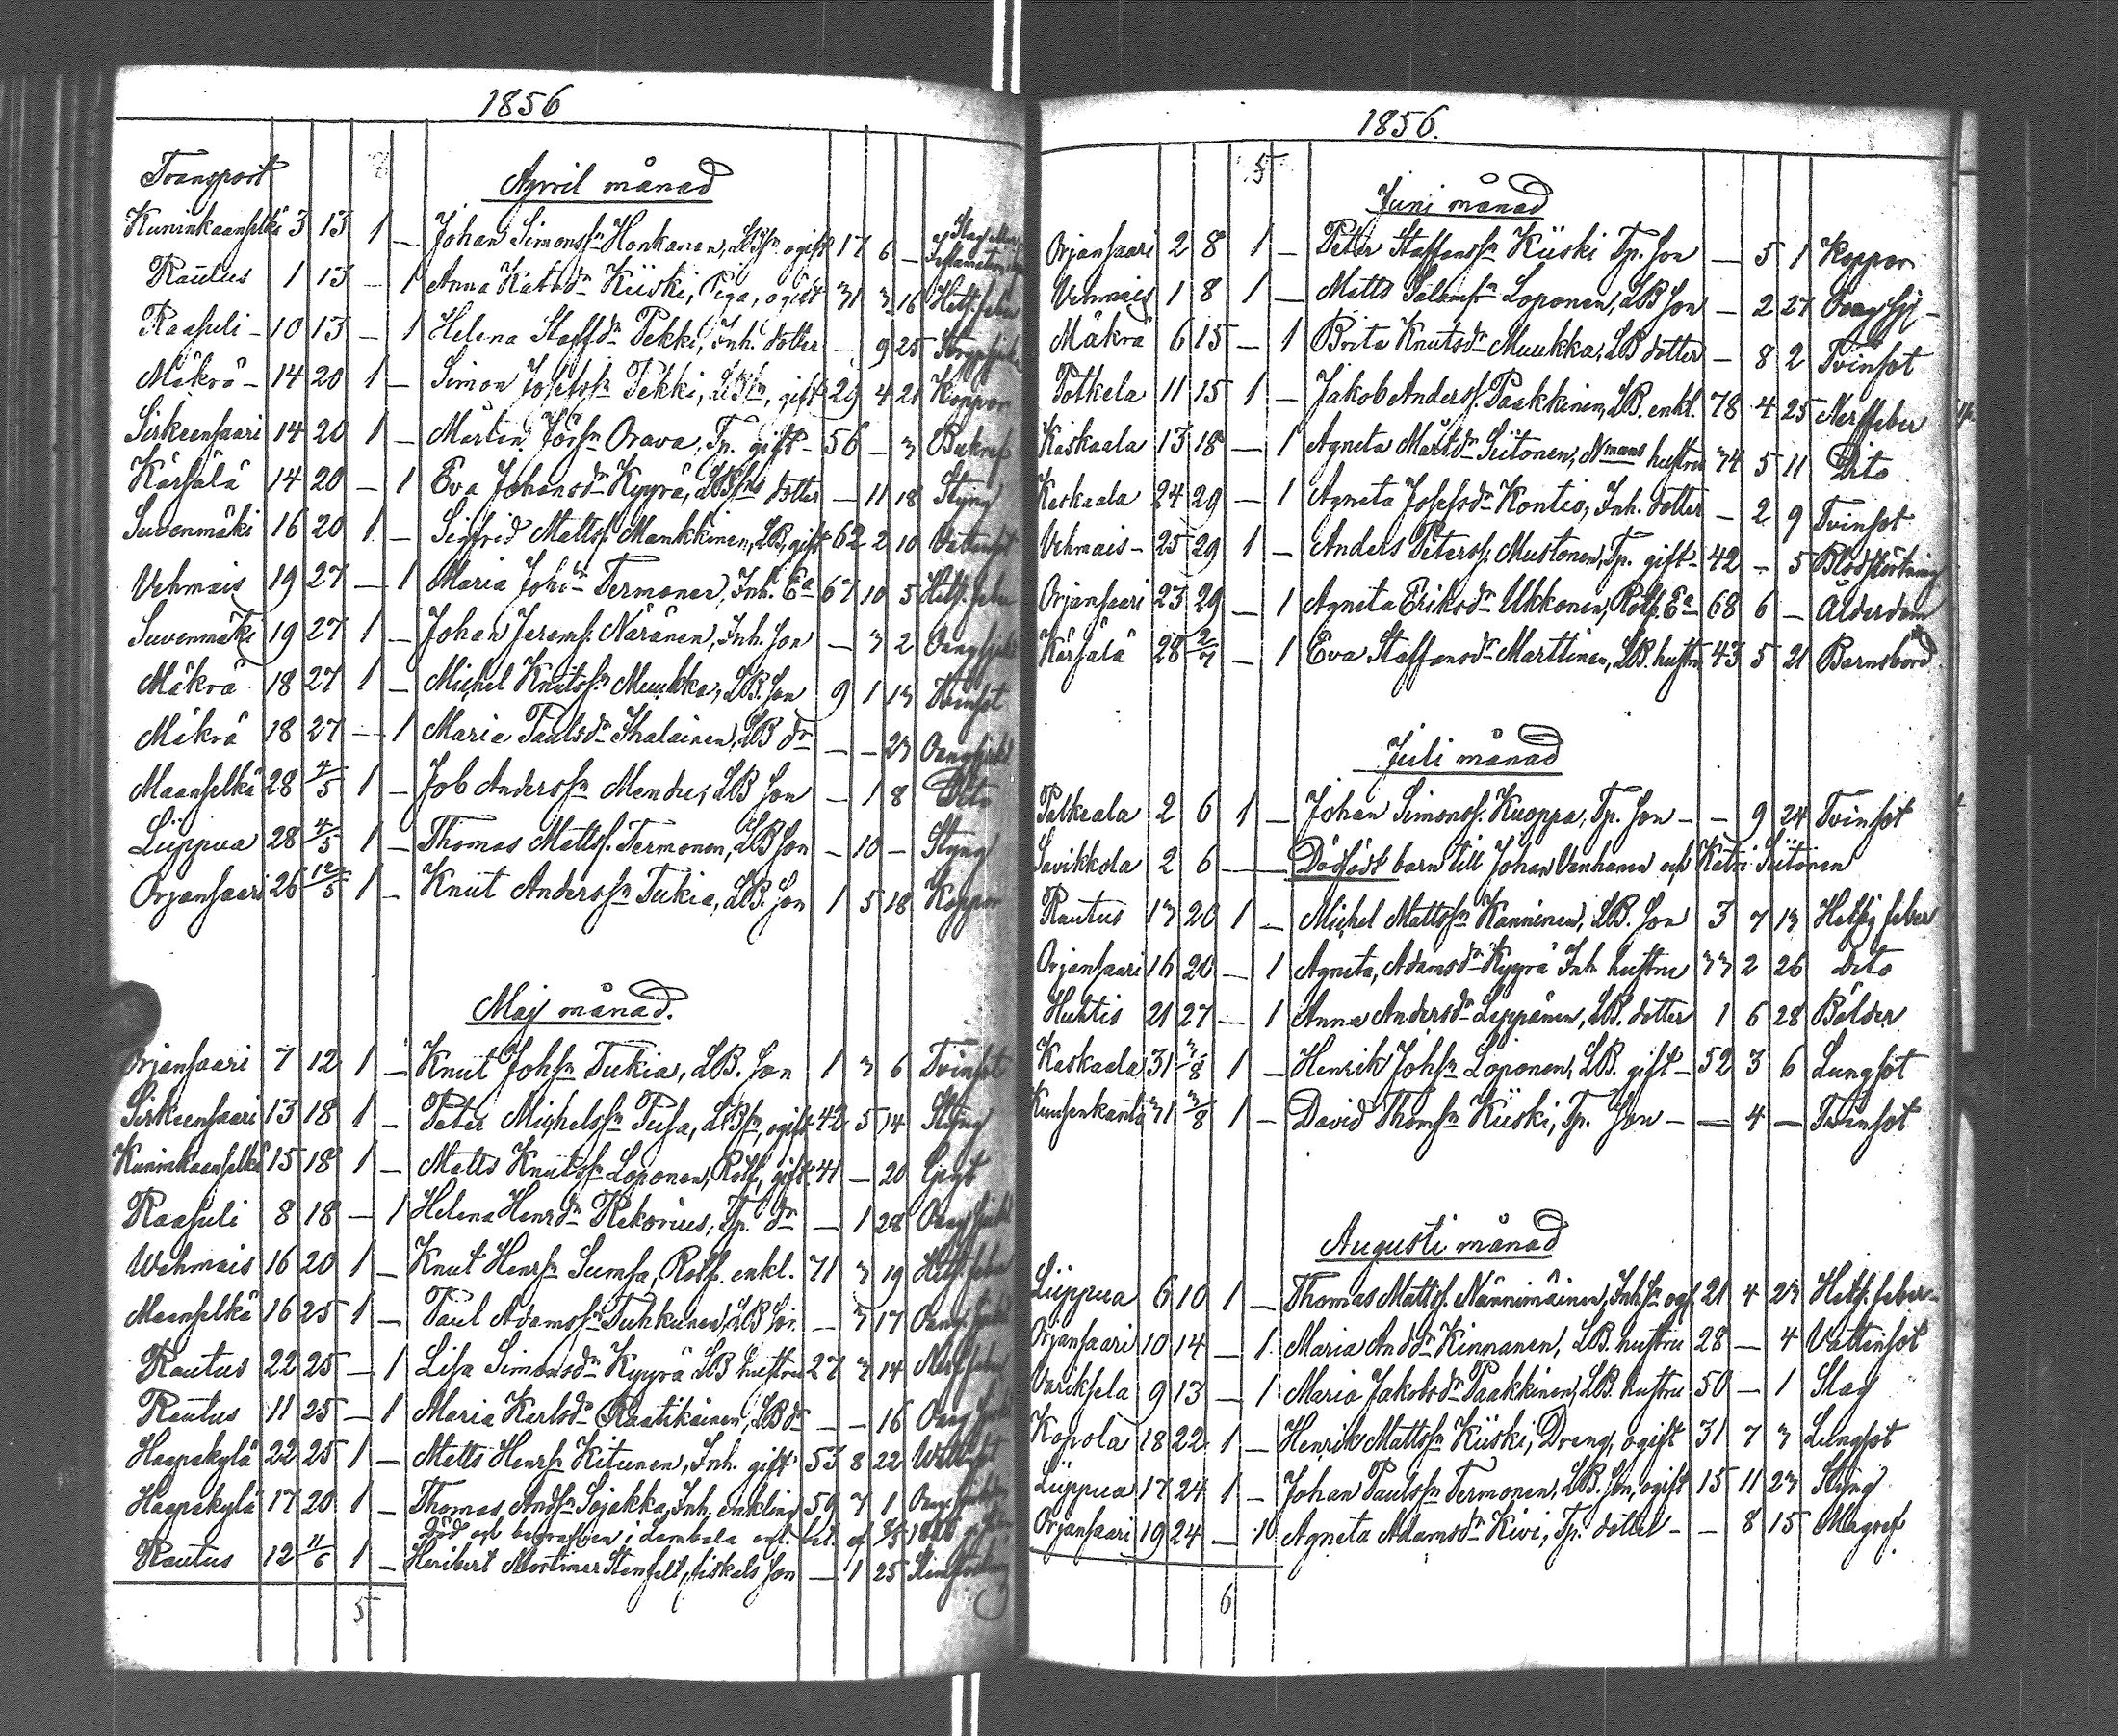 1856
Transport
April månad
Kuninkaanselkä 3 13 1 — Johan Simonss:n Honkanen, LBs:n ogift 17 6 —
Rautus 1 13 — 1 Anna Katrid:r Kiiski, Piga, ogift 31 3 16 Hets. feber
Raasuli — 10 13 — 1 Helena Staffd:r Pekki, Inh. dotter — 9 25
Mäkrä — 14 20 1 — Simon Josefss:n Pekki, LBs:n, gift 29 4 21 Koppor
Sirkeensaari 14 20 1 — Mårten Görs:n Orava, Tp. gift — 56 — 3 Bukref
Kärsälä 14 20 — 1 Eva Johansd:r Kyyrä, LBs:ns dotter — 11 18 Styng
Suvenmäki 16 20 1 — Sigfrid Mattss. Mankkinen, LB, gift 62 2 10 Vattusot
Vehmais 19 27 — 1 Maria Johd:r Termonen, Inh. E:a 67 10 5 Hets. feber
Suvenmäki 19 27 1 — Johan Jeremss. Näränen, Inh. son — 3 2 Oangsjukd
Mäkrä 18 27 1 — Michel Knutss:n Muukka, LB. son 9 1 13 Tvinsot
Mäkrä 18 27 — 1 Maria Paulsd:r Ihalainen, LB d:r — — 23 Oangsjukd
Maanselkä 28 4/5 1 — Job Anderss:n Mendu, LB son — 1 8 Dito
Liippua 28 4/5 1 — Thomas Mattss. Termonen, LB son — 10 — Styng
Orjansaari 26 12/5 1 — Knut Anderss:n Tukia, LB. son 1 5 18 Koppor
Maj månad.
Orjansaari 7 12 1 — Knut Johs:n Tukia, LB. son 1 3 6 Tvinsot
Sirkeensaari 13 18 1 — Peter Michelss:n Pusa, LBs:n, ogift 42 5 14 Styng
Kuninkaanselkä 15 18 1 — Matts Knutss:n Loponen, Rotf, gift 41 — 20 Gigt
Raasuli 8 18 — 1 Helena Henrd:r Rekonius, Tp. d:r — 1 28 Oang sjukd
Wehmais 16 20 1 — Knut Henrs:n Sumsa, Rotf. enkl. 71 3 19 Hets. feber
Maanselkä 16 25 1 — Paul Adamss:n Tuhkunen, LB son — 3 17 Oang. sjukd
Rautus 22 25 — 1 Lisa Simonsd:r Kyyrä LB hustru 27 3 14 Nerf feber
Rautus 11 25 — 1 Maria Karlsd:r Raatikainen, LB d:r — — 16 Oang sjukd
Haapakylä 22 25 1 — Matts Henrs:n Kitunen, Inh. gift 53 8 22 Vattusot
Haapakylä 17 20 1 — Thomas Ands:n Sojakka, Inh. enkling 59 7 1
Död och begrafven i Lembala enl. bet. af
Rautus 12 11/6 1 — Heribert Mortimer Stenfelt, fiskals son — 1 25
5
1856.
5
Juni månad
Orjansaari 2 8 1 — Peter Staffanss:n Kiiski Tp. son — 5 1 Koppor
Vehmais 1 8 1 — Matts Salomss:n Loponen, LB son — 2 27 Oang sj.
Mäkrä 6 15 — 1 Brita Knutsd:r Muukka, LB dotter — 8 2 Tvinsot
Potkela 11 15 1 — Jakob Anderss. Paakkinen, LB. enkl. 78 4 25 Nerffeber
Kaskaala 13 18 — 1 Agneta Mårtd:r Siitonen, Nmans hustru 34 5 11 Dito
Kaskaala 24 29 — 1 Agneta Josefsd:r Kontio, Inh. dotter — 2 9 Tvinsot
Vehmais — 25 29 1 — Anders Peterss. Mustonen, Tp. gift — 42 — 5 Blodstörtning
Orjansaari 23 29 — 1 Agneta Eriksd:r Ukkonen, Rotf. E:a — 68 6 — Ålderdom
Kärsälä 28 2/7 — 1 Eva Staffansd:r Marttinen, LB. hustru 43 5 21 Barnsbörd
Juli månad
Palkeala 2 6 1 — Johan Simonss. Kuoppa, Tp. son — — 9 24 Tvinsot
Savikkola 2 6 — — Dödfödt barn till Johan Vanhanen och Katri Siitonen
Rautus 13 20 1 — Michel Mattss:n Kanninen, LB. son 3 7 13 Hetsig feber
Orjansaari 16 20 — 1 Agneta, Adamsd:r Kyyrä Inh hustru 33 2 26 Dito
Huhtis 21 27 — 1 Anna Andersd:r Leppänen, LB. dotter 1 6 28 Bölder
Kaskaala 31 3/8 1 — Henrik Johs:n Loponen, LB. gift — 52 3 6 Lungsot
31 3/8 1 — David Thoms:n Kiiski, Tp. son — — 4 — Tvinsot
Augusti månad
Liippua 6 10 1 — Thomas Mattss. Nännimäinen, Inh.s:n ogf 21 4 23 Hets. feber
Orjansaari 10 14 — 1 Maria Andd:r Kinnanen, LB. hustru 28 — 4 Vattensot
Variksela 9 13 — 1 Maria Jakobsd:r Paakkinen, LB. hustru 50 — 1 Slag
Kopola 18 22 1 — Henrik Mattss:n Kiiski, Dreng, ogift 31 7 3 Lungsot
Liippua 17 24 1 — Johan Paulss:n Termonen, LB. son, ogift 15 11 23 Styng
Orjansaari 19 24 — 1 Agneta Adamsd:r Kivi, Tp. dotter — — 8 15 Magref
6